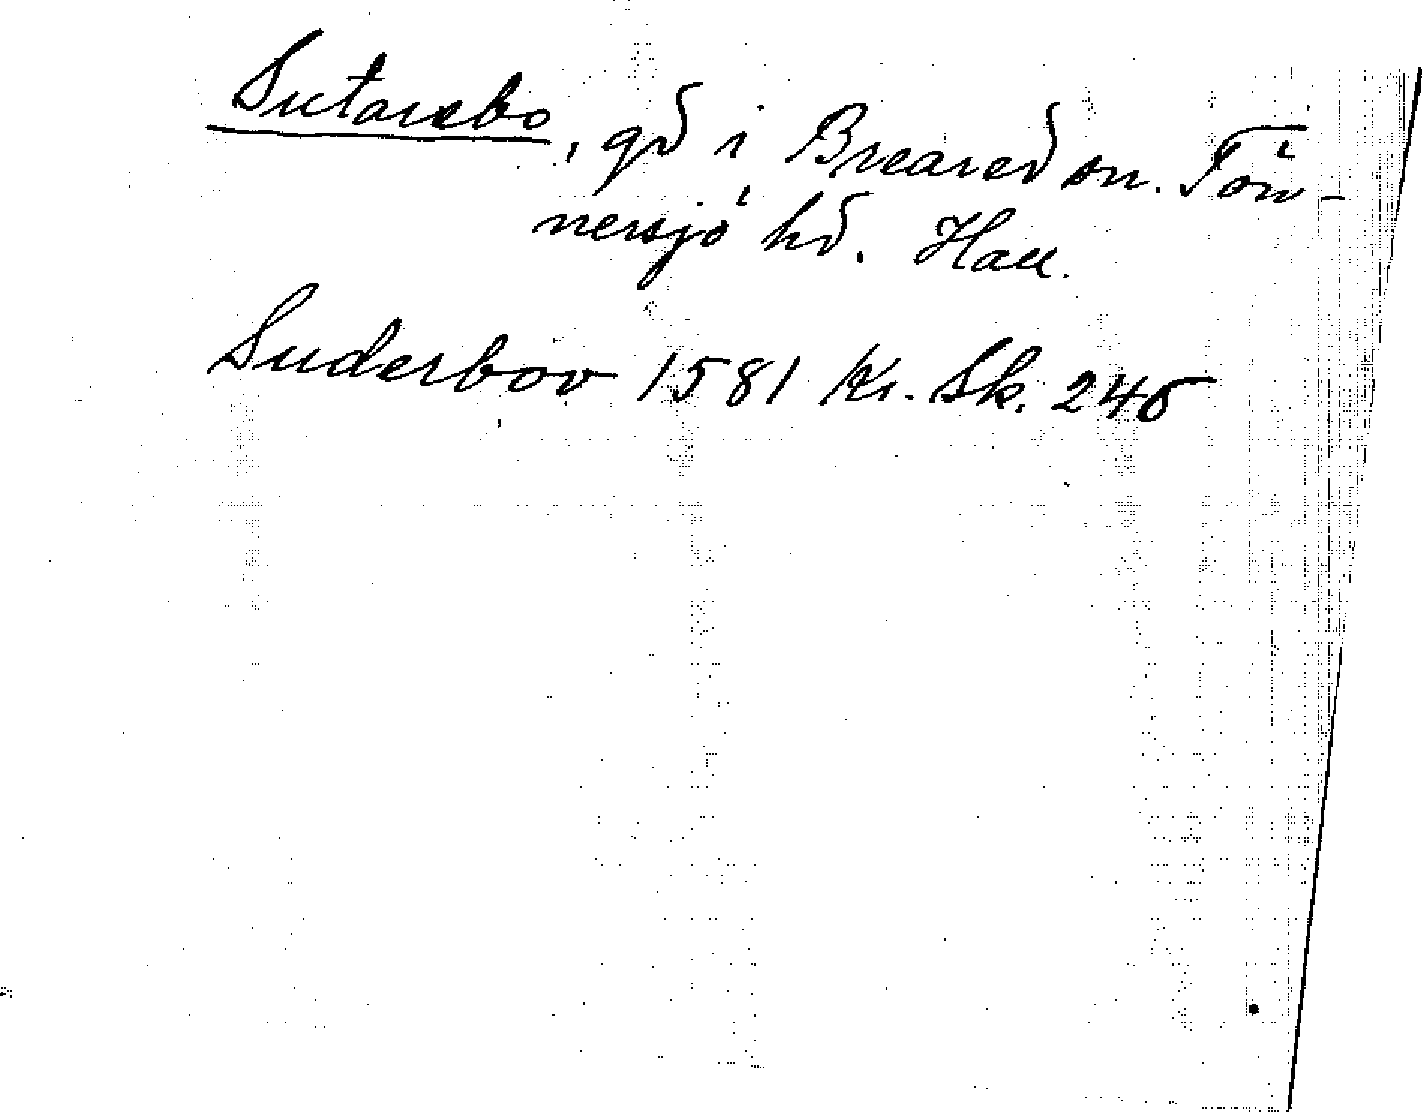 Sutarebo, gd i Breared sn. Tön-
nersjö hd. Hall.
Suderbov 1581 Kr. Sk. 245